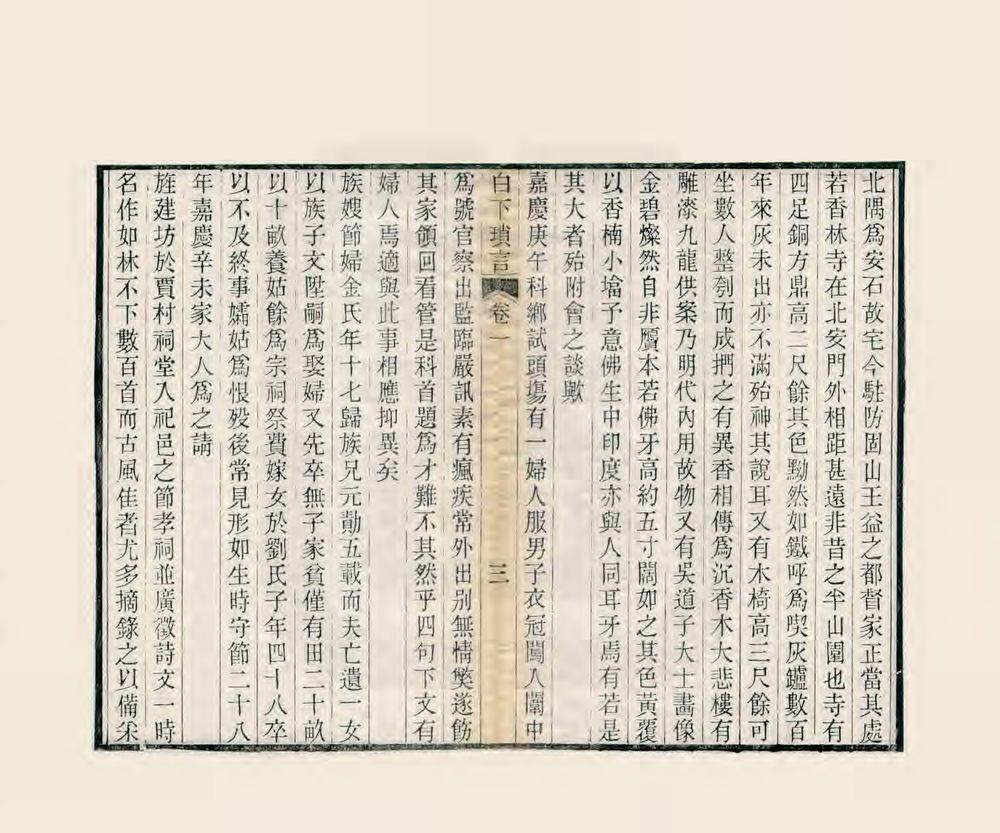 北隅爲安石故宅今駐防固山王益之都督家正當其處
若香林寺在北安門外相距甚遠非昔之半山園也寺有
四足銅方鼎高二尺餘其色黝然如鐵呼爲喫灰鑪數百
年來灰未出亦不滿殆神其說耳又有木椅高三尺餘可
坐數人整刳而成捫之有異香相傳爲沉香木大悲樓有
雕漆九龍供案乃明代內用故物又有吳道子大士畫像
金碧燦然自非贋本若佛牙高約五寸闊如之其色黃覆
以香楠小㙮予意佛生中印度亦與人同耳牙焉有若是
其大者殆附會之談歟
嘉慶庚午科鄉試頭場有一婦人服男子衣冠闖入闈中
白下瑣言 卷一 三
爲號官察出監臨嚴訊素有瘋疾常外出別無情獘遂飭
其家領回看管是科首題爲才難不其然乎四句下文有
婦人焉適與此事相應抑異矣
族嫂節婦金氏年十七歸族兄元勛五載而夫亡遺一女
以族子文陞嗣爲娶婦又先卒無子家貧僅有田二十畝
以十畝養姑餘爲宗祠祭費嫁女於劉氏子年四十八卒
以不及終事孀姑爲恨歿後常見形如生時守節二十八
年嘉慶辛未家大人爲之請
旌建坊於賈村祠堂入祀邑之節孝祠並廣徵詩文一時
名作如林不下數百首而古風佳者尤多摘錄之以備采